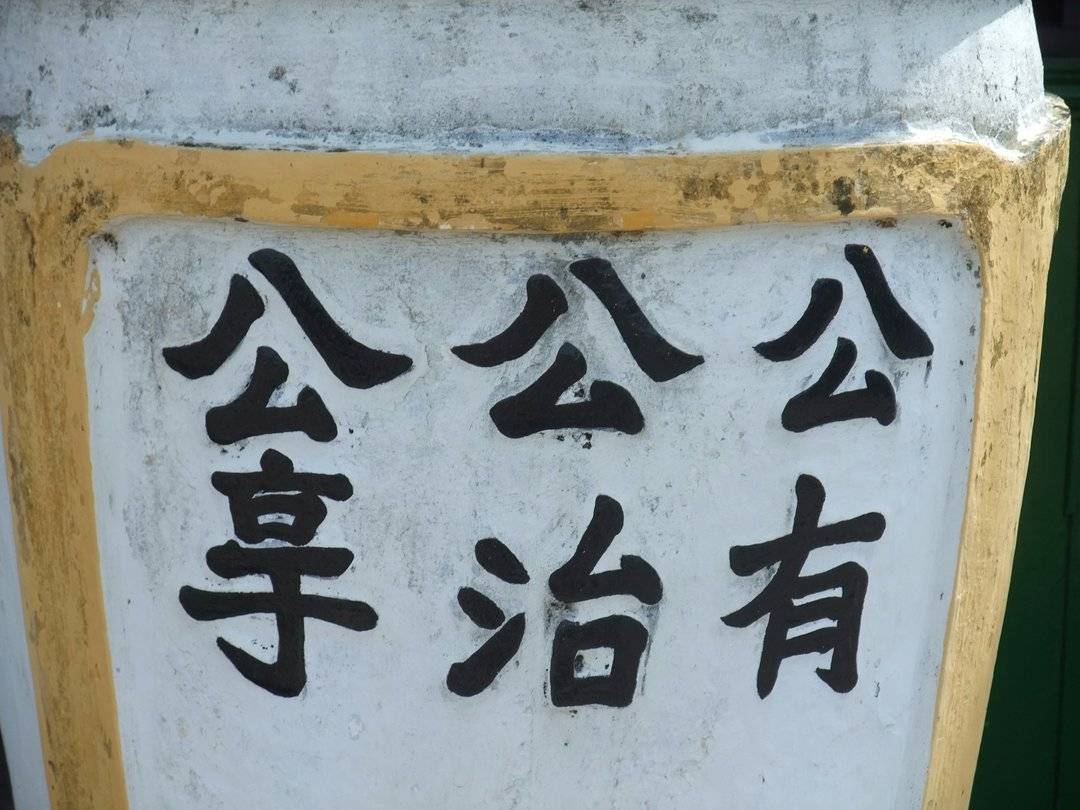 公有
公治
公享